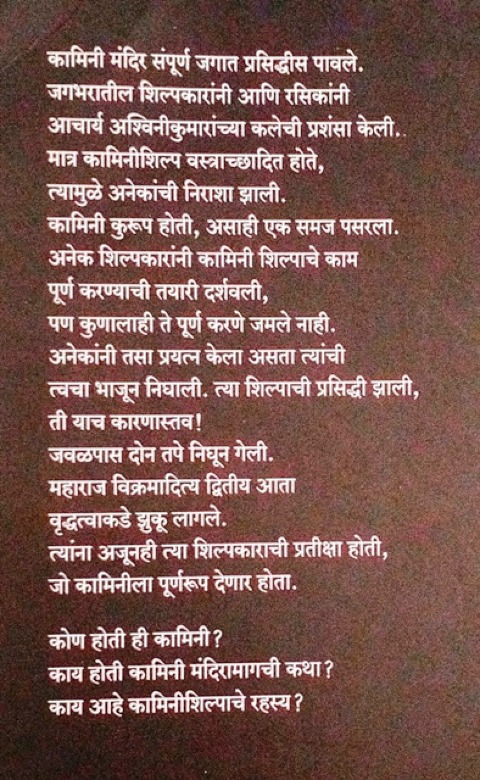 कामिनी मंदिर संपूर्ण जगात प्रसिद्धीस पावले.
जगभरातील शिल्पकारांनी आणि रसिकांनी
आचार्य अश्विनीकुमारांच्या कलेची प्रशंसा केली.
मात्र कामिनीशिल्प वस्त्राच्छादित होते,
त्यामुळे अनेकांची निराशा झाली.
कामिनी कुरूप होती, असाही एक समज पसरला.
अनेक शिल्पकारांनी कामिनी शिल्पाचे काम
पूर्ण करण्याची तयारी दर्शवली,
पण कुणालाही ते पूर्ण करणे जमले नाही.
अनेकांनी तसा प्रयत्न केला असता त्यांची
त्वचा भाजून निघाली. त्या शिल्पाची प्रसिद्धी झाली,
ती याच कारणास्तव!
जवळपास दोन तपे निघून गेली.
महाराज विक्रमादित्य द्वितीय आता
वृद्धत्वाकडे झुकू लागले.
त्यांना अजूनही त्या शिल्पकाराची प्रतीक्षा होती,
जो कामिनीला पूर्णरूप देणार होता.
कोण होती ही कामिनी?
काय होती कामिनी मंदिरामागची कथा?
काय आहे कामिनीशिल्पाचे रहस्य?